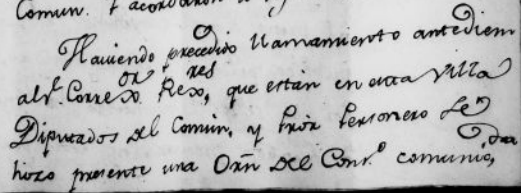 Comun. y acordaron
Haviendo precedido llamamiento antediem
al Sr. Corregor Rexres, que están en esta Villa
Diputados del Comun, y Pror Personero Se
hizo presente una Orn del Conso comunicda